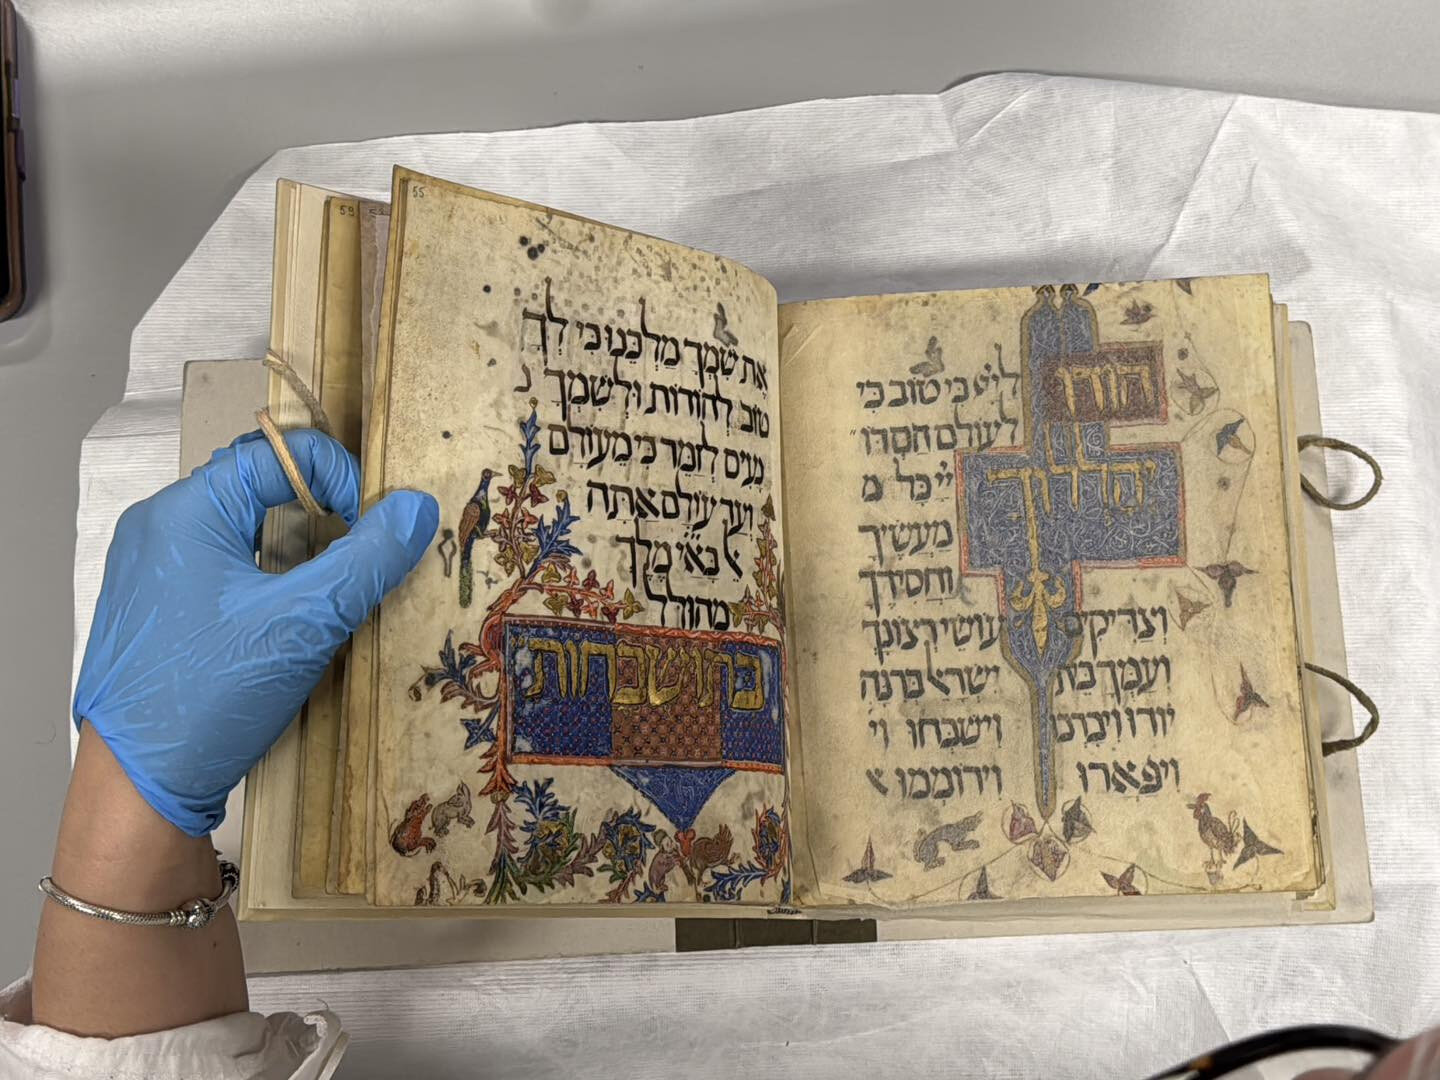 הודו ליי כי טוב כי
לעולם חסדו
יהללוך יי כל מ
מעשיך
וחסידך
וצדיקים עושי רצונך
ועמך בית ישראל ברנה
יודו ויברכו וישבחו וי
ויפארו וירוממו א
55
את שמך מלכנו כי לך
טוב להודות ולשמך נ
נעים לזמר כי מעולם
ועד עולם אתה
א בא״י מלך
מהולל
בתושבחות
59